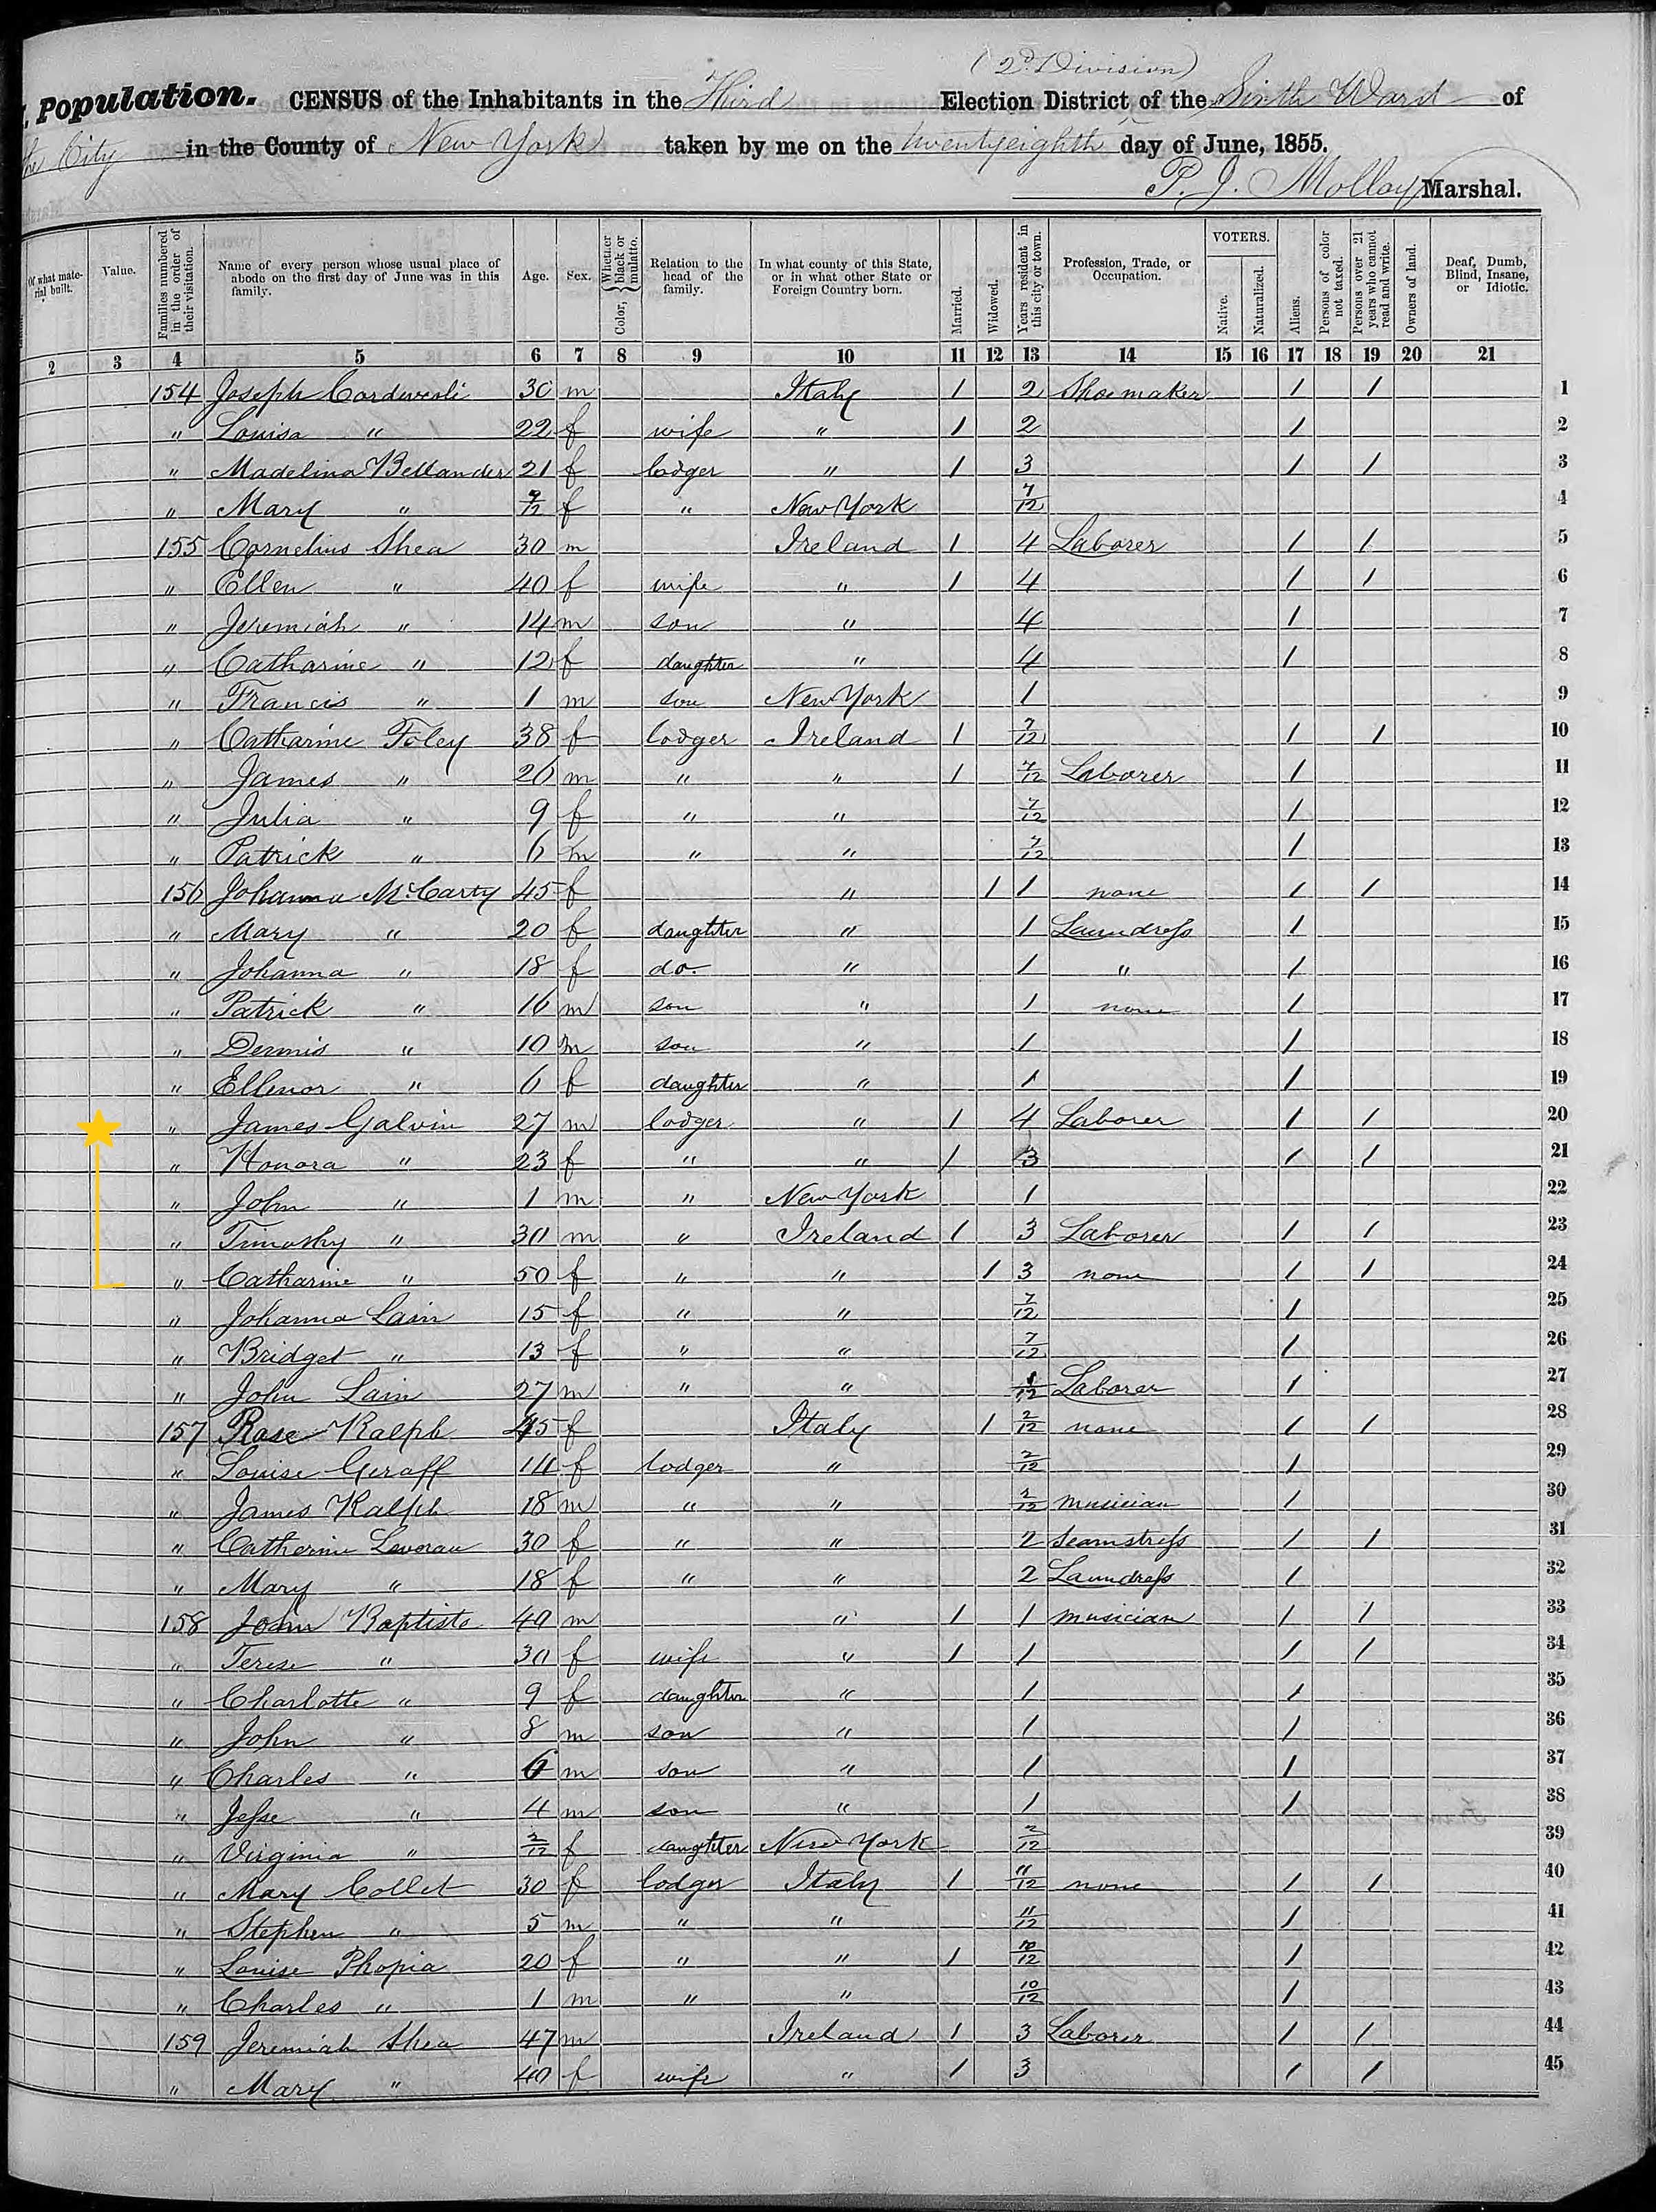 (2d Division)
, Population. CENSUS of the Inhabitants in the Third Election District of the Sixth Ward of
the City in the County of New York taken by me on the twentyeighth day of June, 1855.
P. J. Molloy Marshal.
Of what material built. Value. Families numbered in the order of their visitation. Name of every person whose usual place of abode on the first day of June was in this family. Age. Sex. Color, Whether black or mulatto. Relation to the head of the family. In what county of this State, or in what other State or Foreign Country born. Married. Widowed. Years resident in this city or town. Profession, Trade, or Occupation. VOTERS. Native. Naturalized. Aliens. Persons of color not taxed. Persons over 21 years who cannot read and write. Owners of land. Deaf, Dumb, Blind, Insane, or Idiotic.
2 3 4 5 6 7 8 9 10 11 12 13 14 15 16 17 18 19 20 21
154 Joseph 30 m Italy 1 2 Shoemaker 1 1 1
" Louisa " 22 f wife " 1 2 1 2
" Madelina Bellander 21 f lodger " 1 3 1 1 3
" Mary " f " New York 7/12 4
155 Cornelius Shea 30 m Ireland 1 4 Laborer 1 1 5
" Ellen " 40 f wife " 1 4 1 1 6
" Jeremiah " 14 m son " 4 1 7
" Catharine " 12 f daughter " 4 1 8
" Francis " 1 m son New York 1 9
" Catharine Foley 38 f lodger Ireland 1 7/12 1 1 10
" James " 26 m " " 1 7/12 Laborer 1 11
" Julia " 9 f " " 7/12 1 12
" Patrick " 6 m " " 7/12 1 13
156 Johanna McCarty 45 f " 1 1 none 1 1 14
" Mary " 20 f daughter " 1 Laundress 1 15
" Johanna " 18 f do. " 1 " 1 16
" Patrick " 16 m son " 1 none 1 17
" Dennis " 10 m son " 1 1 18
" Ellenor " 6 f daughter " 1 1 19
" James Galvin 27 m lodger " 1 4 Laborer 1 1 20
" Honora " 23 f " " 1 3 1 1 21
" John " 1 m " New York 1 22
" Timothy " 30 m " Ireland 1 3 Laborer 1 1 23
" Catharine " 50 f " " 1 3 none 1 1 24
" Johanna Lain 15 f " " 7/12 1 25
" Bridget " 13 f " " 7/12 1 26
" John Lain 27 m " " Laborer 1 27
157 Rose Ralph 45 f Italy 1 2/12 none 1 1 28
" Louise Geraff 14 f lodger " 2/12 1 29
" James Ralph 18 m " " 2/12 musician 1 30
" Catherine 30 f " " 2 seamstress 1 1 31
" Mary " 18 f " " 2 Laundress 1 32
158 John Baptiste 40 m " 1 1 musician 1 1 33
" Terese " 30 f wife " 1 1 1 1 34
" Charlotte " 9 f daughter " 1 1 35
" John " 8 m son " 1 1 36
" Charles " 6 m son " 1 1 37
" Jesse " 4 m son " 1 1 38
" Virginia " 2/12 f daughter New York 2/12 39
" Mary Collet 30 f lodger Italy 1 11/12 none 1 1 40
" Stephen " 5 m " " 11/12 1 41
" Louise Phopia 20 f " " 1 10/12 1 42
" Charles " 1 m " " 10/12 1 43
159 Jeremiah Shea 47 m Ireland 1 3 Laborer 1 1 44
" Mary " 40 f wife " 1 3 1 1 45